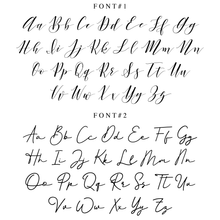 FONT#1
Aa Bb Cc Dd Ee Ff Gg
Hh Ii Jj Kk Ll Mm Nn
Oo Pp Qq Rr Ss Tt Uu
Vv Ww Xx Yy Zz
FONT#2
Aa Bb Cc Dd Ee Ff Gg
Hh Ii Jj Kk Ll Mm Nn
Oo Pp Qq Rr Ss Tt Uu
Vv Ww Xx Yy Zz